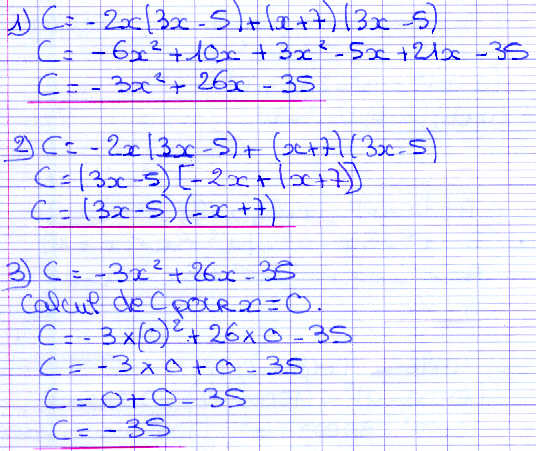 1) C = - 2x(3x - 5) + (x + 7)(3x - 5)
C = - 6x² + 10x + 3x² - 5x + 21x - 35
C = - 3x² + 26x - 35
2) C = - 2x(3x - 5) + (x + 7)(3x - 5)
C = (3x - 5)[- 2x + (x + 7)]
C = (3x - 5)(- x + 7)
3) C = - 3x² + 26x - 35
Calcul de C pour x = 0.
C = - 3 × (0)² + 26 × 0 - 35
C = - 3 × 0 + 0 - 35
C = 0 + 0 - 35
C = - 35